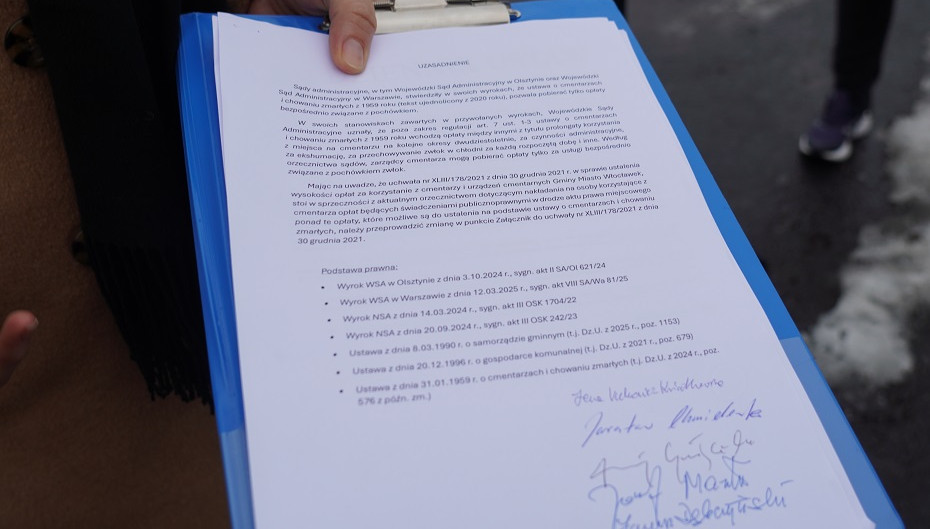 UZASADNIENIE
Sądy administracyjne, w tym Wojewódzki Sąd Administracyjny w Olsztynie oraz Wojewódzki
Sąd Administracyjny w Warszawie, stwierdziły w swoich wyrokach, że ustawa o cmentarzach
i chowaniu zmarłych z 1959 roku (tekst ujednolicony z 2020 roku), pozwala pobierać tylko opłaty
bezpośrednio związane z pochówkiem.
W swoich stanowiskach zawartych w przywołanych wyrokach, Wojewódzkie Sądy
Administracyjne uznały, że poza zakres regulacji art. 7 ust. 1-3 ustawy o cmentarzach
i chowaniu zmarłych z 1959 roku wchodzą opłaty między innymi z tytułu prolongaty korzystania
z miejsca na cmentarzu na kolejne okresy dwudziestoletnie, za czynności administracyjne,
za ekshumację, za przechowywanie zwłok w chłodni za każdą rozpoczętą dobę i inne. Według
orzecznictwa sądów, zarządcy cmentarza mogą pobierać opłaty tylko za usługi bezpośrednio
związane z pochówkiem zwłok.
Mając na uwadze, że uchwała nr XLIII/178/2021 z dnia 30 grudnia 2021 r. w sprawie ustalenia
wysokości opłat za korzystanie z cmentarzy i urządzeń cmentarnych Gminy Miasto Włocławek,
stoi w sprzeczności z aktualnym orzecznictwem dotyczącym nakładania na osoby korzystające z
cmentarza opłat będących świadczeniami publicznoprawnymi w drodze aktu prawa miejscowego
ponad te opłaty, które możliwe są do ustalenia na podstawie ustawy o cmentarzach i chowaniu
zmarłych, należy przeprowadzić zmianę w punkcie Załącznik do uchwały nr XLIII/178/2021 z dnia
30 grudnia 2021.
Podstawa prawna:
• Wyrok WSA w Olsztynie z dnia 3.10.2024 r., sygn. akt II SA/Ol 621/24
• Wyrok WSA w Warszawie z dnia 12.03.2025 r., sygn. akt VIII SA/Wa 81/25
• Wyrok NSA z dnia 14.03.2024 r., sygn. akt III OSK 1704/22
• Wyrok NSA z dnia 20.09.2024 r., sygn. akt III OSK 242/23
• Ustawa z dnia 8.03.1990 r. o samorządzie gminnym (t.j. Dz.U. z 2025 r., poz. 1153)
• Ustawa z dnia 20.12.1996 r. o gospodarce komunalnej (t.j. Dz.U. z 2021 r., poz. 679)
• Ustawa z dnia 31.01.1959 r. o cmentarzach i chowaniu zmarłych (t.j. Dz.U. z 2024 r., poz.
576 z późn. zm.)